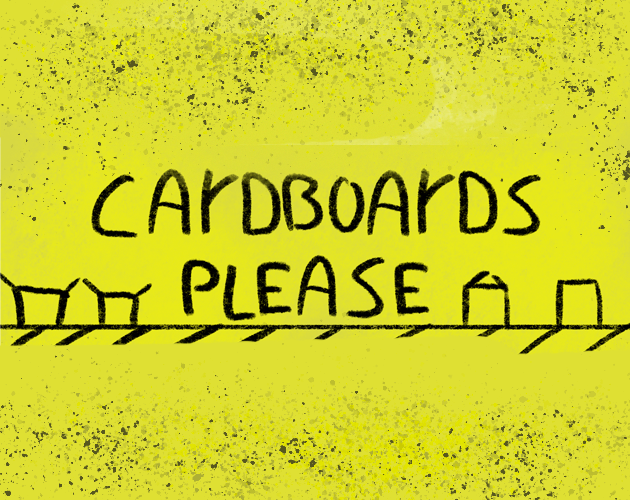 CArDBOArDS
PLEASE